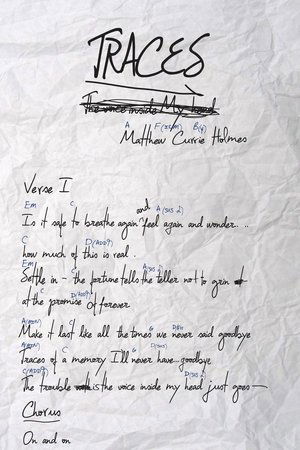 TRACES
The voice inside My head
A F(#x/m) B(4)
Matthew Currie Holmes
Verse I
Em C and A(sus 2)
Is it safe to breathe again feel again and wonder....
C D(ADD9)
how much of this is real.
Em A/sus
Settle in - the fortune tells the teller not to grin
D(ADD9)
at the promise of forever
G D/F#
Make it last like all the times we never said goodbye
C G D(sus)
Traces of a memory I'll never have... goodbye
C(ADD9) A(sus 2)
The trouble is the voice inside my head just goes—
Chorus
On and on